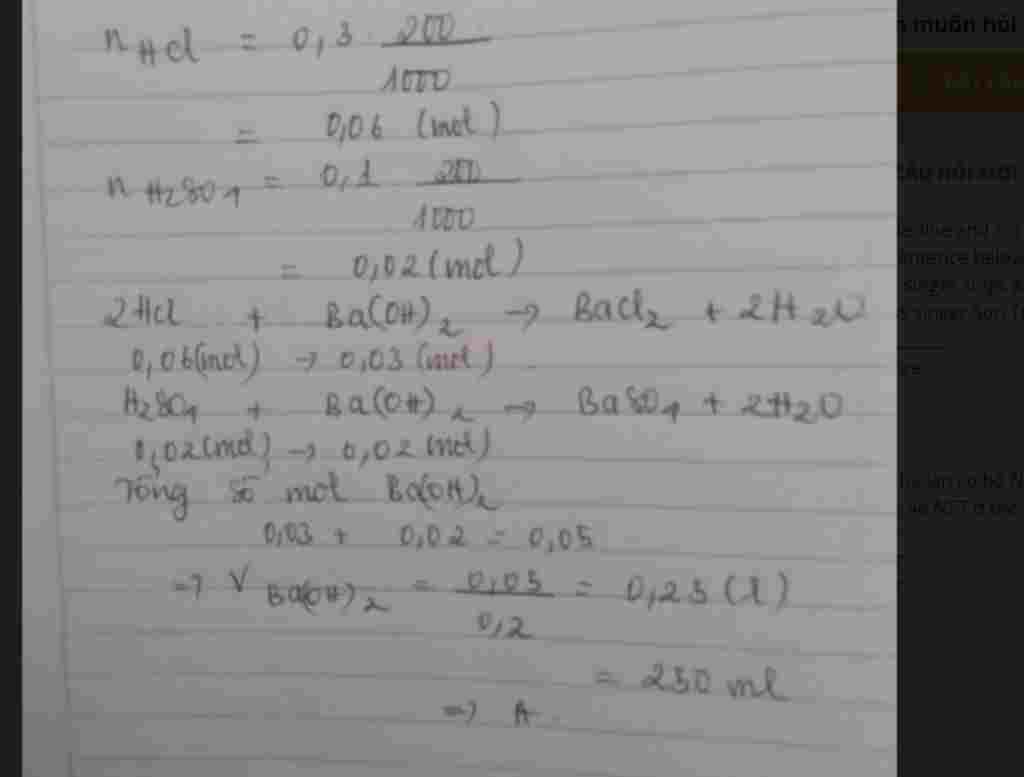 n HCl = 0,3 200
1000
= 0,06 (mol)
n H2SO4 = 0,1 200
1000
= 0,02 (mol)
2HCl + Ba(OH)2 → BaCl2 + 2H2O
0,06(mol) → 0,03 (mol)
H2SO4 + Ba(OH)2 → BaSO4 + 2H2O
0,02(mol) → 0,02(mol)
Tổng số mol Ba(OH)2
0,03 + 0,02 = 0,05
=> V Ba(OH)2 = 0,05 = 0,25 (l)
0,2
= 250 ml
=> A
n muốn hỏi